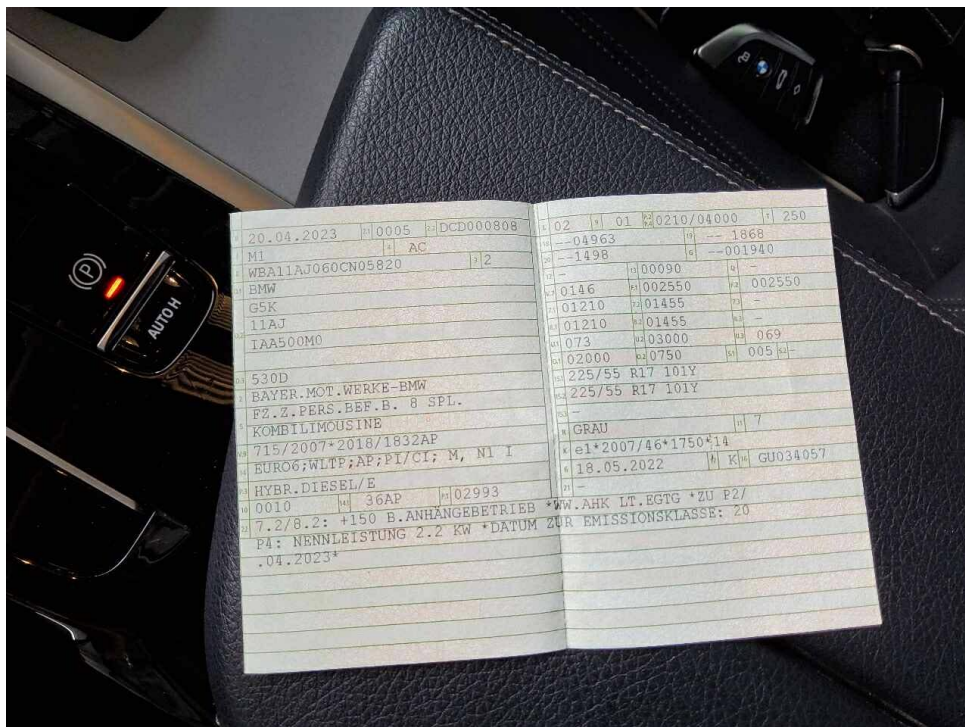 AUTO H
P
BMW
20.04.2023 2.1 0005 2.2 DCD000808
M1 4 AC
WBA11AJ060CN05820 3 2
BMW
G5K
11AJ
IAA500M0
530D
BAYER.MOT.WERKE-BMW
FZ.Z.PERS.BEF.B. 8 SPL.
KOMBILIMOUSINE
715/2007*2018/1832AP
EURO6;WLTP;AP;PI/CI; M, N1 I
HYBR.DIESEL/E
0010 14.1 36AP P.1 02993
L 02 9 01 P.2 P.4 0210/04000 T 250
18 --04963 19 -- 1868
20 --1498 G --001940
12 - 13 00090 Q -
V.7 0146 F.1 002550 F.2 002550
7.1 01210 7.2 01455 7.3 -
8.1 01210 8.2 01455 8.3 -
U.1 073 U.2 03000 U.3 069
O.1 02000 O.2 0750 S.1 005 S.2 -
15.1 225/55 R17 101Y
15.2 225/55 R17 101Y
15.3 -
R GRAU 11 7
K e1*2007/46*1750*14
6 18.05.2022 17 K 16 GU034057
21 -
22 7.2/8.2: +150 B.ANHÄNGEBETRIEB *WW.AHK LT.EGTG *ZU P2/
P4: NENNLEISTUNG 2.2 KW *DATUM ZUR EMISSIONSKLASSE: 20
.04.2023*